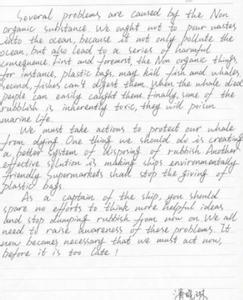 Several problems are caused by the Non
organic substance. We ought not to pour wastes
into the ocean, because it not only pollute the
ocean, but also lead to a series of harmful
consequence. First and foremost, the Non organic things,
for instance, plastic bags, may kill fish and whales.
Second, fishes can't digest them. When the whale died
People can easily caught them. Finally, some of the
rubbish is inherently toxic, they will poison
marine life.
We must take actions to protect our whale
from dying. One thing we should do is creating
a better system of disposing of rubbish. Another
effective solution is making ships environmentally
friendly. Supermarkets shall stop the giving of
plastic bags.
As a captain of the ship, you should
spare no efforts to think more helpful ideas
and stop dumping rubbish from now on. We all
need to raise awareness of these problems. It
now becomes necessary that we must act now,
before it is too late!